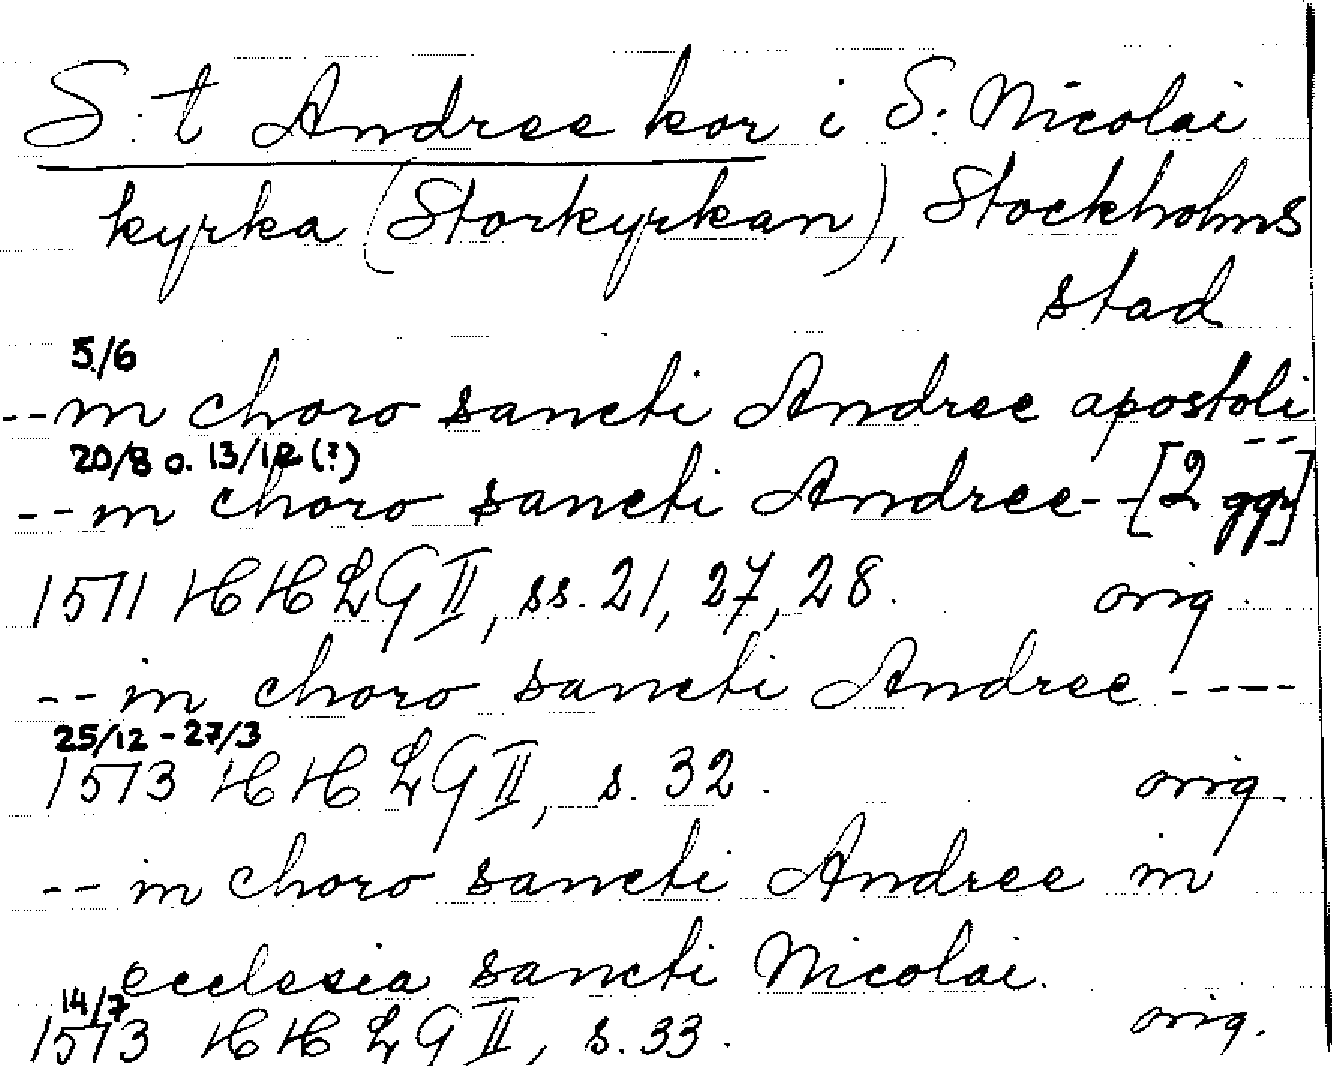 S:t Andree kor i S: Nicolai
kyrka (Storkyrkan), Stockholms
stad
5/6
-- in choro sancti Andree apostoli --
20/8 o. 13/12 (?)
-- in choro sancti Andree -- [2 ggr]
1571 HHLG II, ss. 21, 27, 28. orig.
-- in choro sancti Andree ----
25/12 - 27/3
1573 HHLG II, s. 32. orig.
-- in choro sancti Andree in
ecclesia sancti Nicolai.
14/7
1573 HHLG II, s. 33. orig.